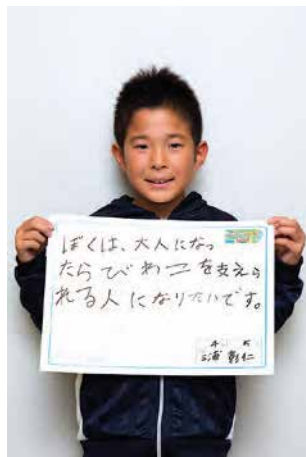 ぼくは、大人になっ
たらびわコを支えら
れる人になりたいです。